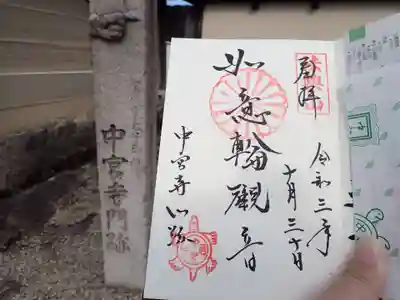 奉拝
令和三年
十月三十日
如意輪観音
中宮寺門跡
中宮寺門跡